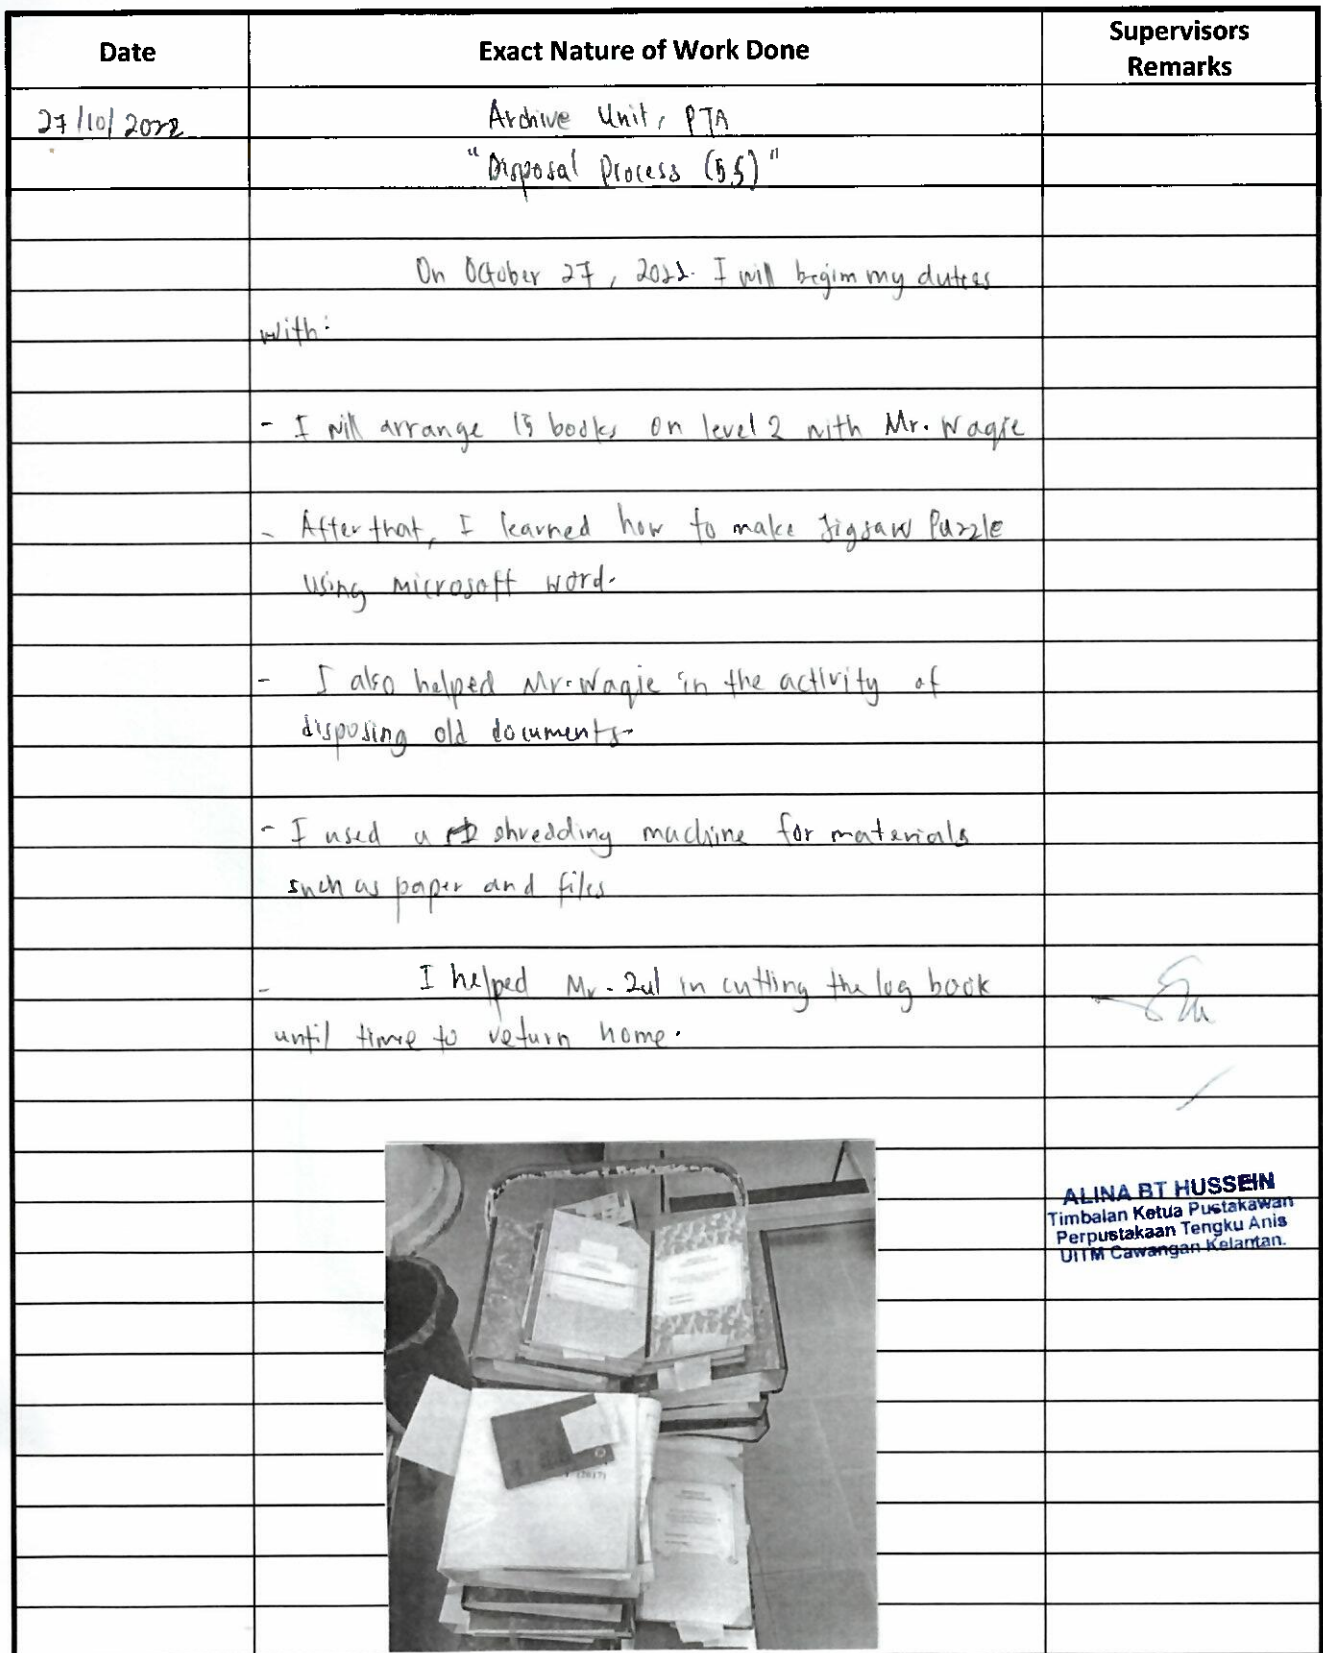 Date
Exact Nature of Work Done
Supervisors
Remarks
27/10/2022
Archive Unit, PTA
"Disposal Process (5S)"
On October 27, 2022. I will begin my duties
with:
- I will arrange 15 books on level 2 with Mr. Waqie
- After that, I learned how to make Jigsaw Puzzle
using microsoft word.
- I also helped Mr. Waqie in the activity of
disposing old documents.
- I used a shredding machine for materials
such as paper and files
- I helped Mr. Zul in cutting the log book
until time to return home.
ALINA BT HUSSEIN
Timbalan Ketua Pustakawan
Perpustakaan Tengku Anis
UiTM Cawangan Kelantan.
(2017)